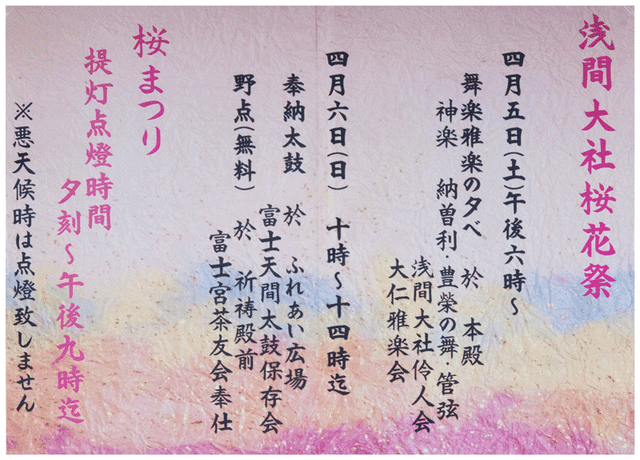 浅間大社桜花祭
四月五日(土)午後六時～
舞楽雅楽の夕べ 於 本殿
神楽 納曽利・豊榮の舞・管弦
浅間大社伶人会
大仁雅楽会
四月六日(日) 十時～十四時迄
奉納太鼓 於 ふれあい広場
富士天間太鼓保存会
野点(無料) 於 祈祷殿前
富士宮茶友会奉仕
桜まつり
提灯点燈時間
夕刻～午後九時迄
※悪天候時は点燈致しません